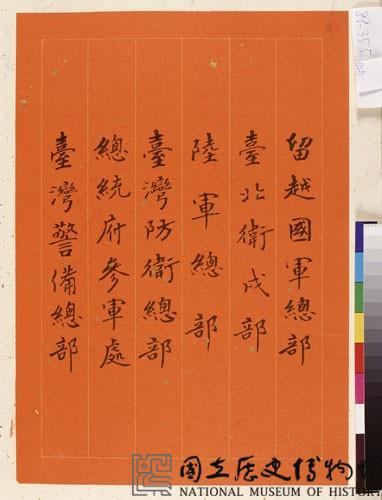 留越國軍總部
臺北衛戍部
陸軍總部
臺灣防衛總部
總統府參軍處
臺灣警備總部
國立歷史博物館
NATIONAL MUSEUM OF HISTORY